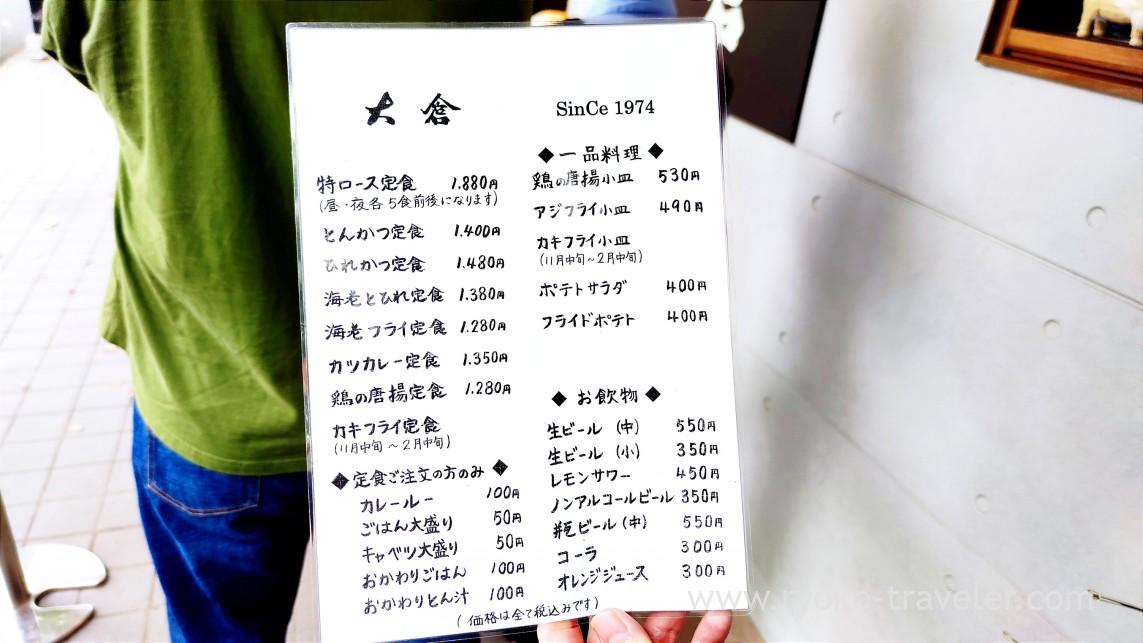 大倉
特ロース定食 1.880円
(昼・夜各 5食前後になります)
とんかつ定食 1.400円
ひれかつ定食 1.480円
海老とひれ定食 1.380円
海老フライ定食 1.280円
カツカレー定食 1.350円
鶏の唐揚定食 1.280円
カキフライ定食
(11月中旬〜2月中旬)
◆定食ご注文の方のみ◆
カレールー 100円
ごはん大盛り 50円
キャベツ大盛り 50円
おかわりごはん 100円
おかわりとん汁 100円
SinCe 1974
◆一品料理◆
鶏の唐揚小皿 530円
アジフライ小皿 490円
カキフライ小皿
(11月中旬〜2月中旬)
ポテトサラダ 400円
フライドポテト 400円
◆お飲物◆
生ビール (中) 550円
生ビール (小) 350円
レモンサワー 450円
ノンアルコールビール 350円
瓶ビール(中) 550円
コーラ 300円
オレンジジュース 300円
(価格は全て税込みです)
www.mono-traveler.com